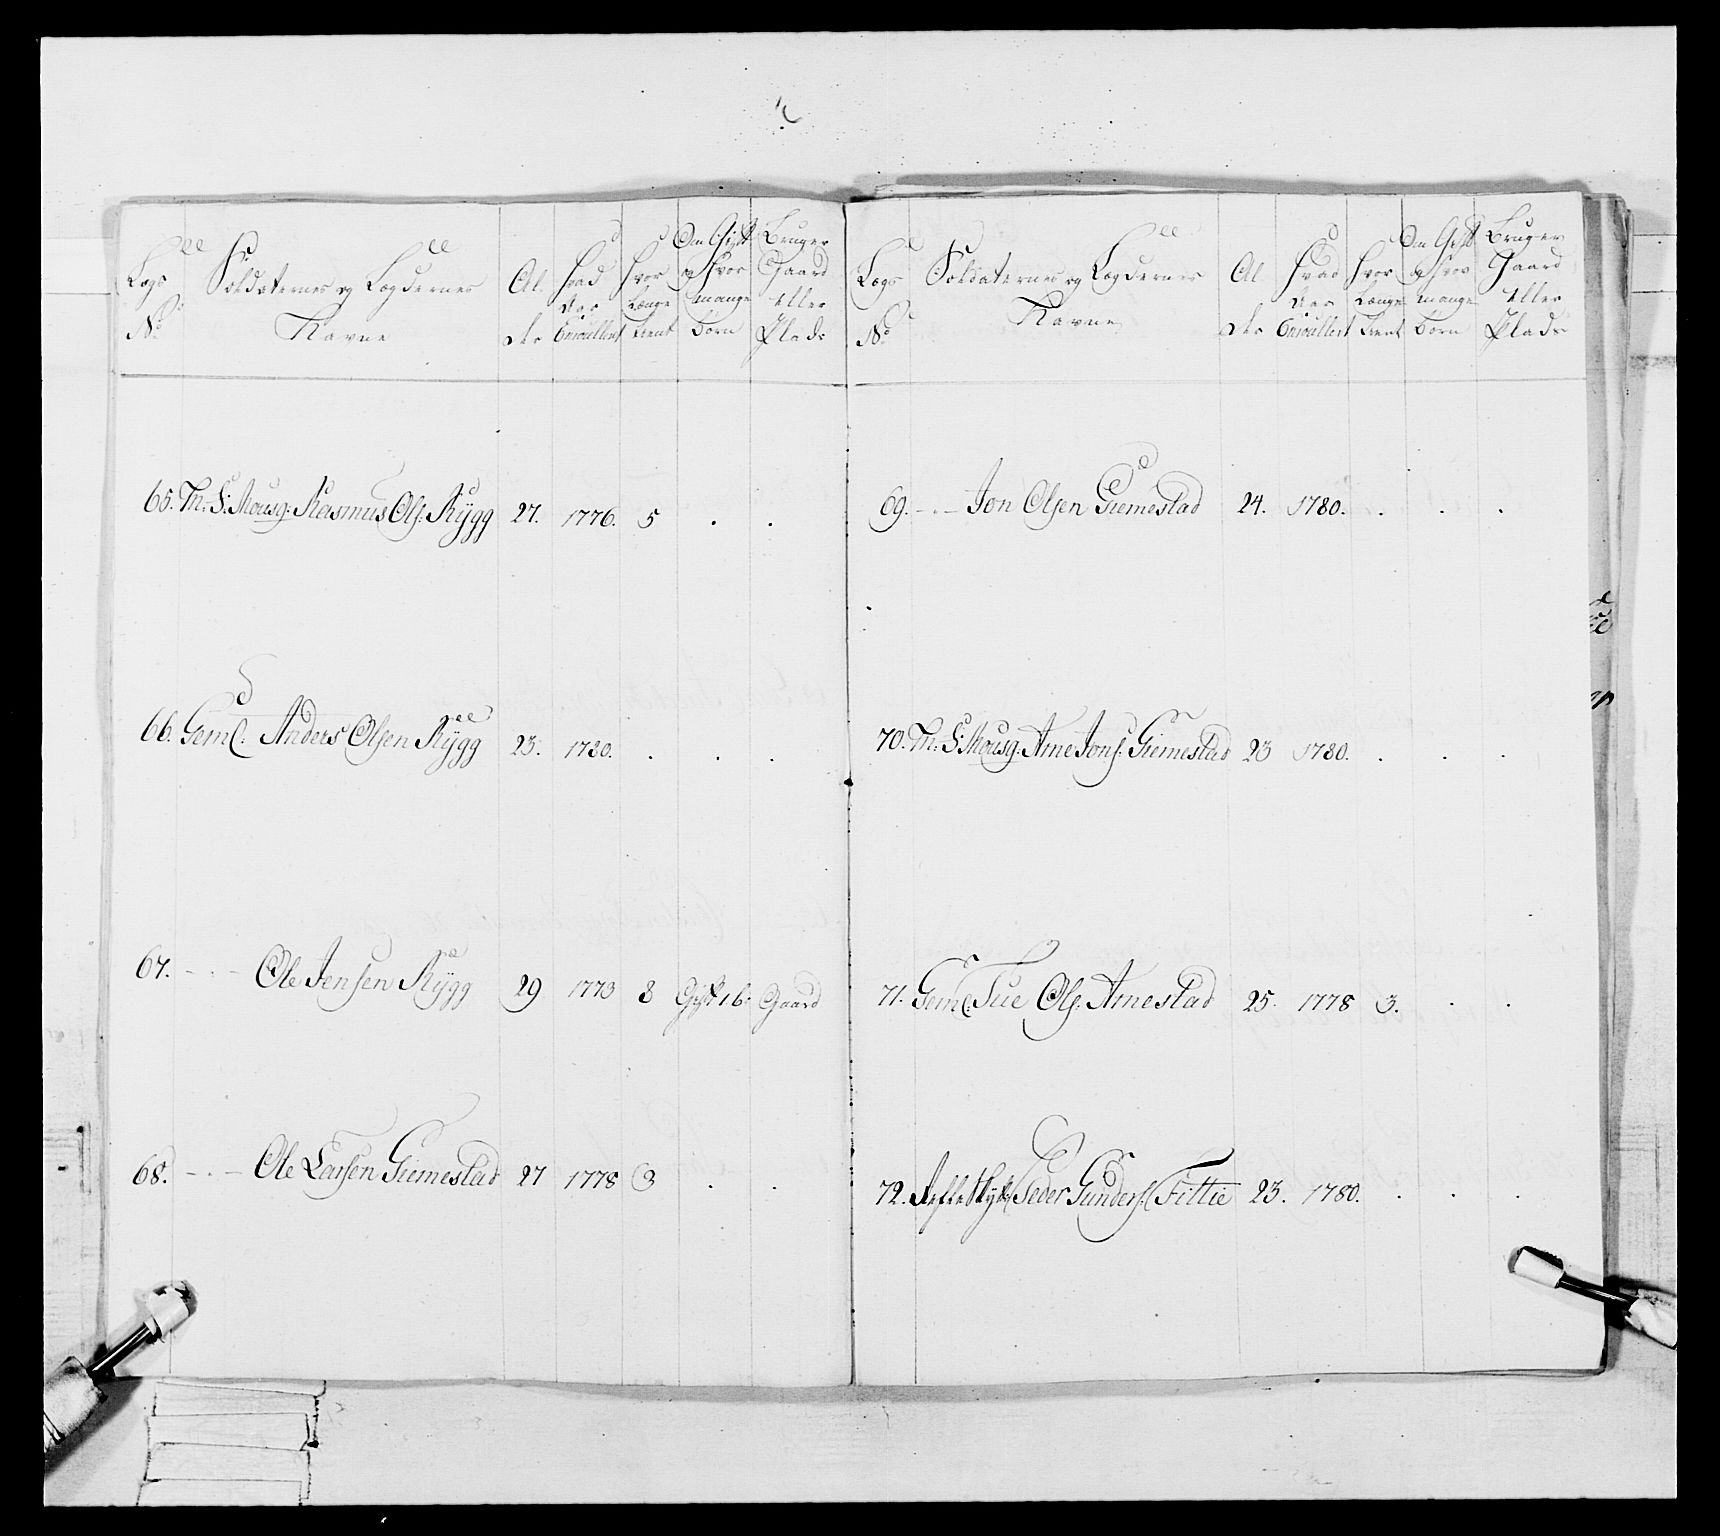 Lægs No Soldaternes og Lægdernes Navne Alder Hvad Aar Enroullert Hvor Længe tient Om Gift og Hvor mange børn Bruger Gaard eller Plads
65. Th: S: Mousq: Rasmus Ols: Rÿgg 27. 1776. 5 . .
66. Geml. Anders Olsen Rÿgg 23. 1780. . . .
67. - . - Ole Jensen Rÿgg 29 1773 8 Gift 1 b: Gaard
68. - . - Ole Larsen Giemestad 27 1778 3 . .
Lægs No Soldaternes og Lægdernes Navne Alder Hvad Aar Enroullert Hvor Længe tient Om Gift og Hvor mange børn Bruger Gaard eller Plads
69. - . - Jon Olsen Giemestad 24. 1780. . . .
70. Th: S: Mousq: Arne Jons: Giemestad 23 1780. . . .
71. Geml. Tue Ols: Arnestad 25. 1778 3. . .
72. Peder Gunders: Fittie 23. 1780. . . .